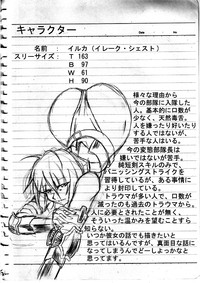 キャラクター
名前　イルカ（イレーク・シェスト）
スリーサイズ：　T　163
B　97
W　61
H　90
様々な理由から
今の部隊に入隊した
人。基本的に口数が
少なく、天然毒舌。
人を嫌ったり好いたり
する人ではないが、
苦手な人はいる。
今の変態部隊長は
嫌いではないが苦手。
純短剣スキルのみで、
バニシングストライク
を習得しているが、ある事情に
より封印している。
トラウマが多い人で、口数が
減ったのも過去のトラウマから。
人に必要とされたことが無く、
そういった温かみを望むことすら
知らない。
いつか彼女の話でも描きたいと
思ってはいるんですが、真面目な話に
なってしまうんでどーしよーかなと
思ってます。